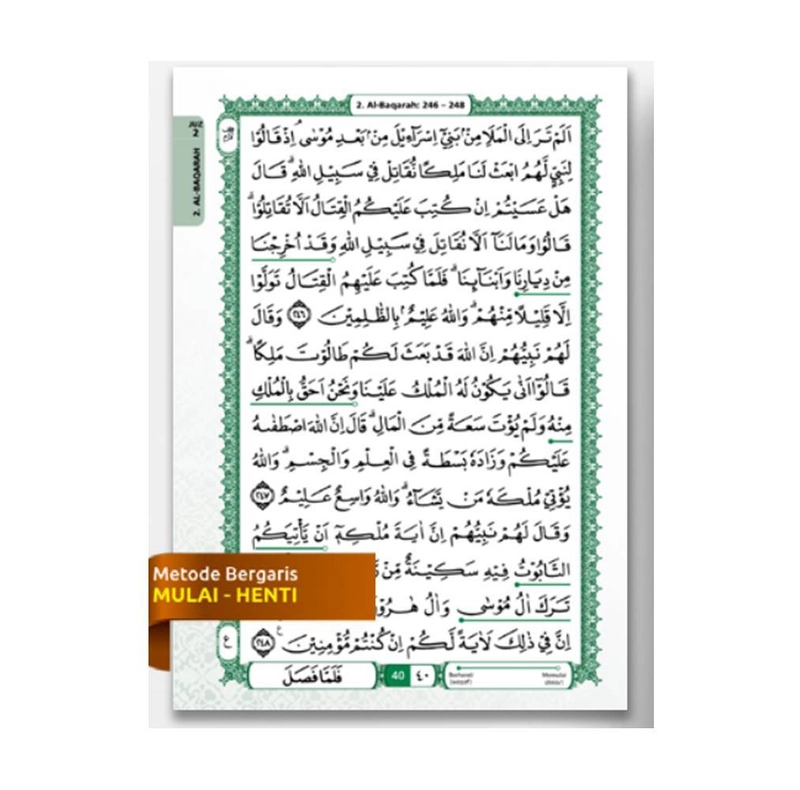 2. Al-Baqarah: 246 – 248
JUZ 2
2. AL-BAQARAH
اَلَمْ تَرَ اِلَى الْمَلَاِ مِنْۢ بَنِيْٓ اِسْرَاۤءِيْلَ مِنْۢ بَعْدِ مُوْسٰىۘ اِذْ قَالُوْا
لِنَبِيٍّ لَّهُمُ ابْعَثْ لَنَا مَلِكًا نُّقَاتِلْ فِيْ سَبِيْلِ اللّٰهِ ۗ قَالَ
هَلْ عَسَيْتُمْ اِنْ كُتِبَ عَلَيْكُمُ الْقِتَالُ اَلَّا تُقَاتِلُوْا ۗ
قَالُوْا وَمَا لَنَآ اَلَّا نُقَاتِلَ فِيْ سَبِيْلِ اللّٰهِ وَقَدْ اُخْرِجْنَا
مِنْ دِيَارِنَا وَاَبْنَاۤىِٕنَا ۗ فَلَمَّا كُتِبَ عَلَيْهِمُ الْقِتَالُ تَوَلَّوْا
اِلَّا قَلِيْلًا مِّنْهُمْ ۗ وَاللّٰهُ عَلِيْمٌۢ بِالظّٰلِمِيْنَ ٢٤٦ وَقَالَ
لَهُمْ نَبِيُّهُمْ اِنَّ اللّٰهَ قَدْ بَعَثَ لَكُمْ طَالُوْتَ مَلِكًا ۗ
قَالُوْٓا اَنّٰى يَكُوْنُ لَهُ الْمُلْكُ عَلَيْنَا وَنَحْنُ اَحَقُّ بِالْمُلْكِ
مِنْهُ وَلَمْ يُؤْتَ سَعَةً مِّنَ الْمَالِ ۗ قَالَ اِنَّ اللّٰهَ اصْطَفٰىهُ
عَلَيْكُمْ وَزَادَهٗ بَسْطَةً فِى الْعِلْمِ وَالْجِسْمِ ۗ وَاللّٰهُ
يُؤْتِيْ مُلْكَهٗ مَنْ يَّشَاۤءُ ۗ وَاللّٰهُ وَاسِعٌ عَلِيْمٌ ٢٤٧
وَقَالَ لَهُمْ نَبِيُّهُمْ اِنَّ اٰيَةَ مُلْكِهٖٓ اَنْ يَّأْتِيَكُمُ
التَّابُوْتُ فِيْهِ سَكِيْنَةٌ مِّنْ
تَرَكَ اٰلُ مُوْسٰى وَاٰلُ هٰرُوْنَ
اِنَّ فِيْ ذٰلِكَ لَاٰيَةً لَّكُمْ اِنْ كُنْتُمْ مُّؤْمِنِيْنَ ٢٤٨
ع
Metode Bergaris
MULAI - HENTI
فَلَمَّا فَصَلَ
40 ٤٠
Berhenti
Memulai